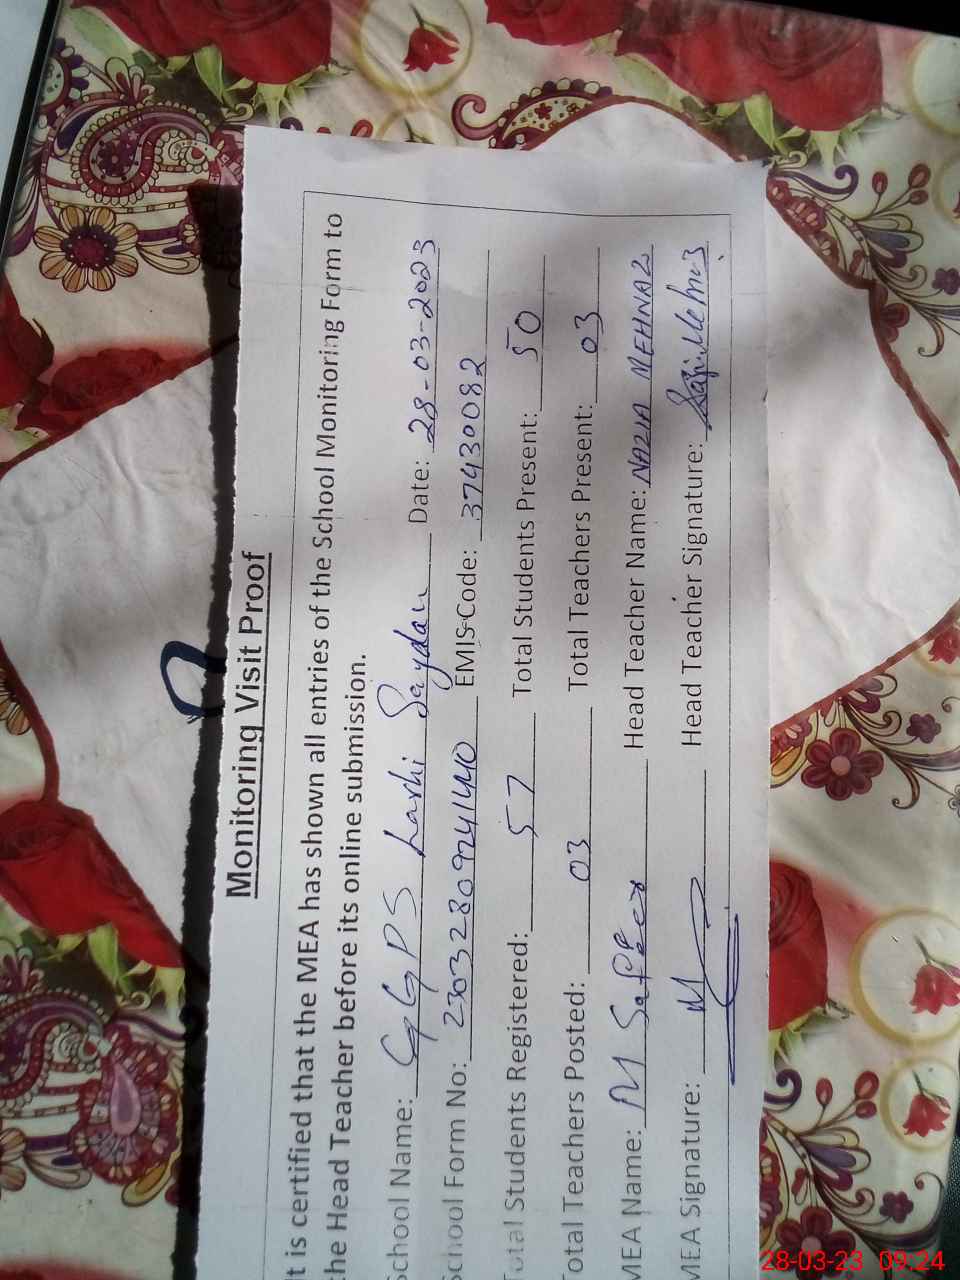 Monitoring Visit Proof
It is certified that the MEA has shown all entries of the School Monitoring Form to
the Head Teacher before its online submission.
School Name: GGPS Larhi Saydan Date: 28-03-2023
School Form No: 23032809241440 EMIS Code: 37430082
Total Students Registered: 57 Total Students Present: 50
Total Teachers Posted: 03 Total Teachers Present: 03
MEA Name: M Saffer Head Teacher Name: NAZIA MEHNAZ
MEA Signature: Head Teacher Signature:
28-03-23 09:24